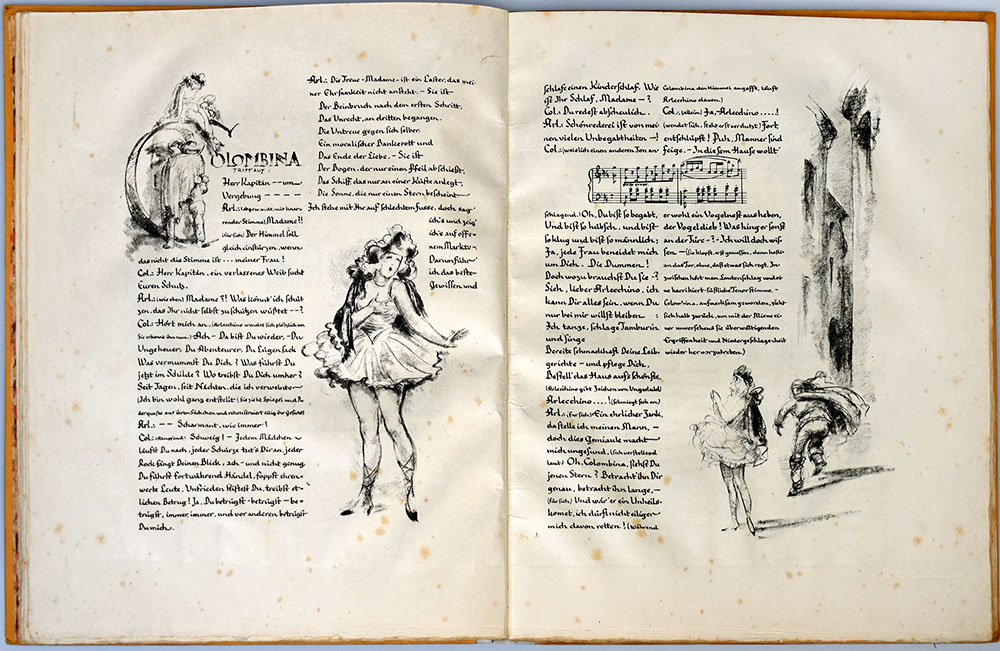 COLOMBINA
TRITT AUF:
Herr Kapitän -- um
Vergebung - - - -
Arl.: (abgewandt, mit knar-
render Stimme) Madame?!
(für sich) Der Himmel soll
gleich einstürzen, wenn
das nicht die Stimme ist ... meiner Frau!
Col.: Herr Kapitän, ein verlassenes Weib sucht
Euren Schutz.
Arl.: (wie oben) Madame?! Was könnt' ich schüt-
zen, das Ihr nicht selbst zu schützen wüßtet --?
Col.: Hört mich an. (Arlecchino wendet sich plötzlich um
Sie erkennt ihn nun.) Ach - Da bist Du wieder, - Du
Ungeheuer, Du Abenteurer, Du Lügensack
Was vermummst Du Dich? Was führst Du
jetzt im Schilde? Wo treibst Du Dich umher?
Seit Tagen, seit Nächten, die ich verweinte -
(Ich bin wohl ganz entstellt (Sie zieht Spiegel und Pu-
derquaste aus ihrem Säckchen und rekonstruiert eilig ihr Gesicht)
Arl.: -- Scharmant, wie immer!
Col.: Schweig! - Jedem Mädchen
läufst Du nach, jeder Schürze tut's Dir an, jeder
Rock fängt Deinen Blick, ach - und nicht genug,
Du führst fortwährend Händel, foppst ehren-
werte Leute, Unfrieden stiftest Du, treibst et-
lichen Betrug! Ja, Du betrügst - betrügst - be-
trügst, immer, immer, und vor anderen betrügst
Du mich.
Arl.: Die Treue - Madame - ist ein Laster, das mei-
ner Ehrsamkeit nicht ansteht. - Sie ist
Der Beinbruch nach dem ersten Schritt,
Das Unrecht, an dritten begangen,
Die Untreue gegen sich selber.
Ein moralischer Bankerott und
Das Ende der Liebe. - Sie ist
Der Bogen, der nur einen Pfeil abschießt,
Das Schiff, das nur an einer Küste anlegt,
Die Sonne, die nur einen Stern bescheint
Ich stehe mit Ihr auf schlechtem fusse, doch sag'
ich's und zeig'
ich's auf offe-
nem Markte -
Darum führ'
ich das beste
Gewissen und
schlafe einen Kinderschlaf. Wie
ist Ihr Schlaf, Madame - ?
Col.: Du redest abscheulich.
Arl.: Schönrederei ist von mei-
nen vielen Unbegabtheiten -!
Col.: (weislich einen anderen Ton an-
schlagend.) Oh, Du bist so begabt,
Und bist so hübsch, und bist
so klug und bist so männlich;
Ja, jede Frau beneidet mich
um Dich. Die Dummen!
Doch wozu brauchst Du sie - ?
Sieh, lieber Arlecchino, ich
kann Dir alles sein, wenn Du
nur bei mir willst bleiben :
Ich tanze, schlage Tamburin
und singe
Bereite schmackhaft Deine Leib-
gerichte - und pflege Dich,
Bestell' das Haus auf's schönste,
(Arlecchino gibt Zeichen von Ungeduld)
Arlecchino....! (schmiegt sich an)
Arl.: (für sich) Ein ehrlicher Zank,
da stelle ich meinen Mann, -
doch dies Gemiaule macht
mich ungesund, (sich verstellend
laut) Oh, Colombina, siehst Du
jenen Stern? Betracht' ihn Dir
genau, betracht' ihn lange, -
(für sich) Und wär' er ein Unheils-
komet, ich dürft nicht eiliger
mich davon retten! (während
Colombina den Himmel angafft, läuft
Arlecchino davon.)
Col.: (allein) Ja, Arlecchino....!
(wendet sich, steht erst verdutzt) Fort,
entschlüpft! Puh, Männer sind
feige. - In diesem Hause wollt'
er wohl ein Vogelnest ausheben,
der Vogeldieb! Was hing er sonst
an der Türe - ? - Ich will doch wis-
sen - (Sie klopft, erst gemessen, dann heftig
an das Tor, ohne, daß etwas sich regt. In-
zwischen hört man Lautenschlag und ei-
ne karrikiert-süßliche Tenorstimme. -
Colombina, aufmerksam geworden, zieht
sich halb zurück, um mit der Miene ei-
ner unversehens sie überwältigenden
Ergriffenheit und Niedergeschlagenheit
wieder hervorzutreten)